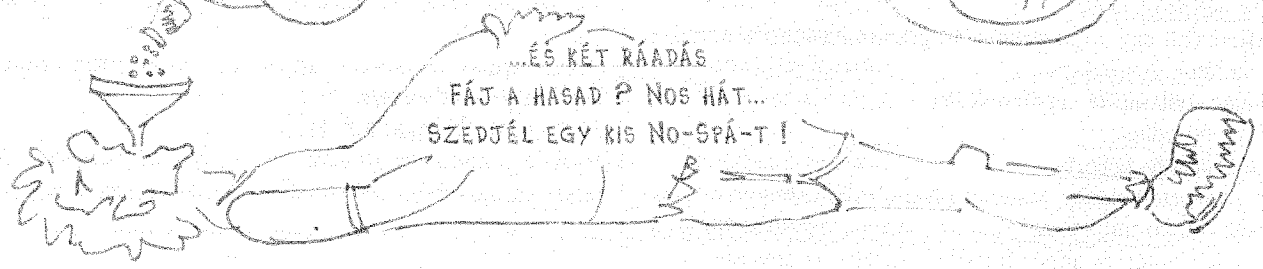 ...ÉS KÉT RÁADÁS
FÁJ A HASAD ? NOS HÁT...
SZEDJÉL EGY KIS NO-SPÁ-T !